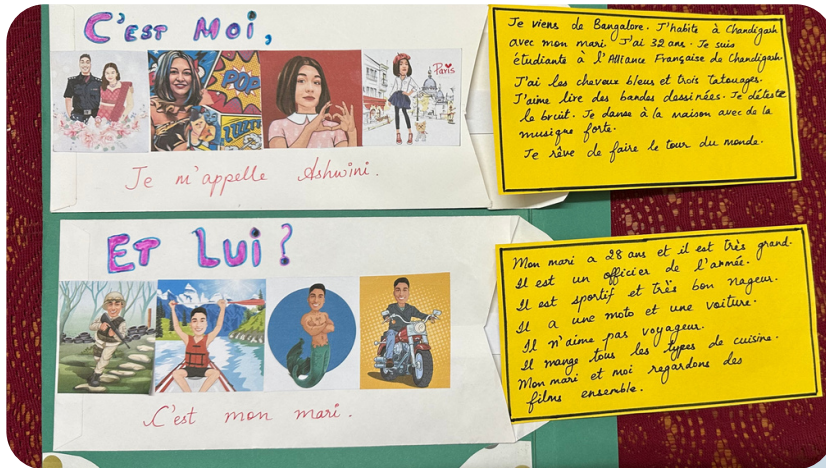 C'EST MOI,
POP
Paris
Je m'appelle Ashwini.
Je viens de Bangalore. J'habite à Chandigarh
avec mon mari. J'ai 32 ans. Je suis
étudiante à l'Alliance Française de Chandigarh.
J'ai les cheveux bleus et trois tatouages.
J'aime lire des bandes dessinées. Je déteste
le bruit. Je danse à la maison avec de la
musique forte.
Je rêve de faire le tour du monde.
ET LUI?
C'est mon mari.
Mon mari a 28 ans et il est très grand.
Il est un officier de l'armée.
Il est sportif et très bon nageur.
Il a une moto et une voiture.
Il n'aime pas voyageur.
Il mange tous les types de cuisine.
Mon mari et moi regardons des
films ensemble.